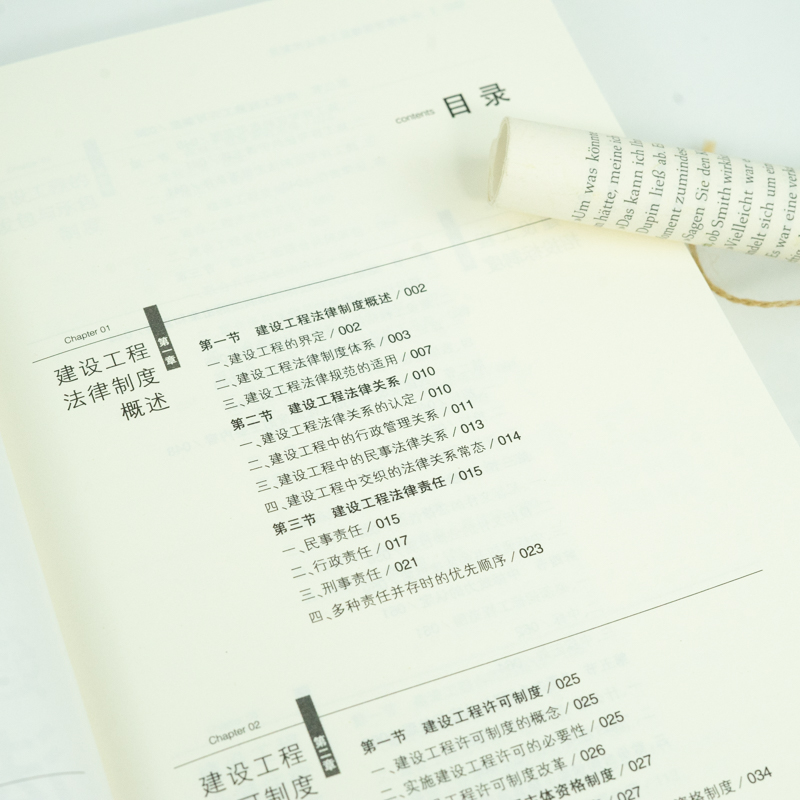 contents 目录
Chapter 01
第一章
建设工程
法律制度
概述
第一节 建设工程法律制度概述 / 002
一、建设工程的界定 / 002
二、建设工程法律制度体系 / 003
三、建设工程法律规范的适用 / 007
第二节 建设工程法律关系 / 010
一、建设工程法律关系的认定 / 010
二、建设工程中的行政管理关系 / 011
三、建设工程中的民事法律关系 / 013
四、建设工程中交织的法律关系常态 / 014
第三节 建设工程法律责任 / 015
一、民事责任 / 015
二、行政责任 / 017
三、刑事责任 / 021
四、多种责任并存时的优先顺序 / 023
Chapter 02
第二章
建设工程
可制度
第一节 建设工程许可制度 / 025
一、建设工程许可制度的概念 / 025
二、实施建设工程许可的必要性 / 025
工程许可制度改革 / 026
主体资格制度 / 027
/ 027
资格制度 / 034
»Um was könnt
hätte, meine
»Das kann ich
Dupin ließ ab.
ment zumindes
»Sagen Sie den
ob Smith wirkl
»Vielleicht war
delt sich um
Es war eine